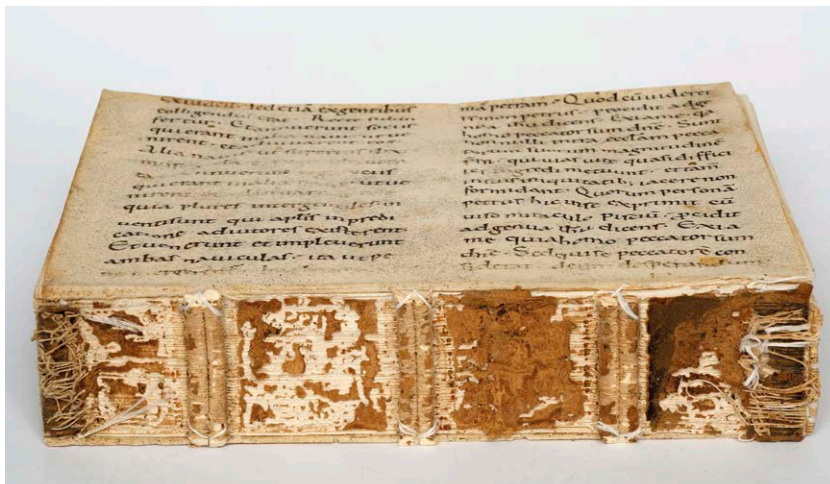 exiudeis. sed etiã exgentibus
colligendus erat. Recte subin
fertur. Et annuerunt sociis
qui erant in
nirent. et adiuuarent eos
Alia nauis
annuerunt sociis
qui erant in alia naui ut ue
nirent
quia plures inter gentiles in
uenti sunt qui aplis in predi
catione adiutores existerent.
Et uenerunt et impleuerunt
ambas nauiculas. ita ut pe
mã petram. Quod cũ uideret
simon petrus. procidit ad ge
nua ihu dicens. Exi a me. qa
homo peccator sum dñe. Sunt
non nulli intra ecclam pecca
torum suorum magnitudinẽ
qui uias uite quasi diffici
les ingredi metuunt. et tam
iniquitatibus iacere non
formidant. Quorum personã
petrus hic exprimit cũ
uiso miraculo Pisciũ. procidit
ad genua ihu dicens. Exi a
me quia homo peccator sum
dñe. Sed peccatorẽ con
siderat desperandum